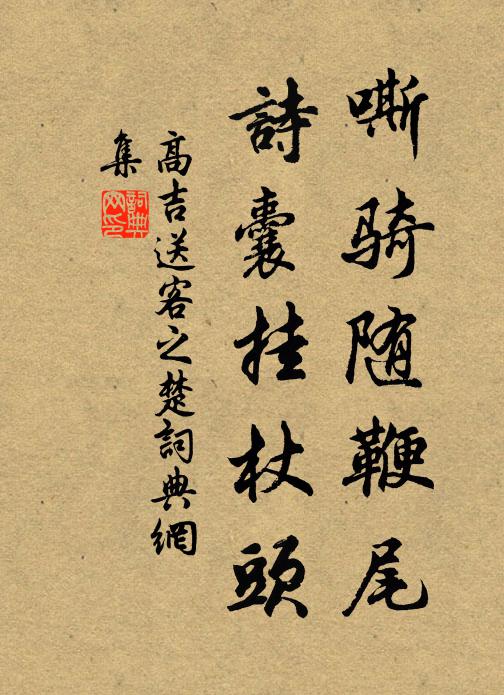 嘶骑随鞭尾
詩囊挂杖頭
高吉送客之楚詞典網
集
詞典网印